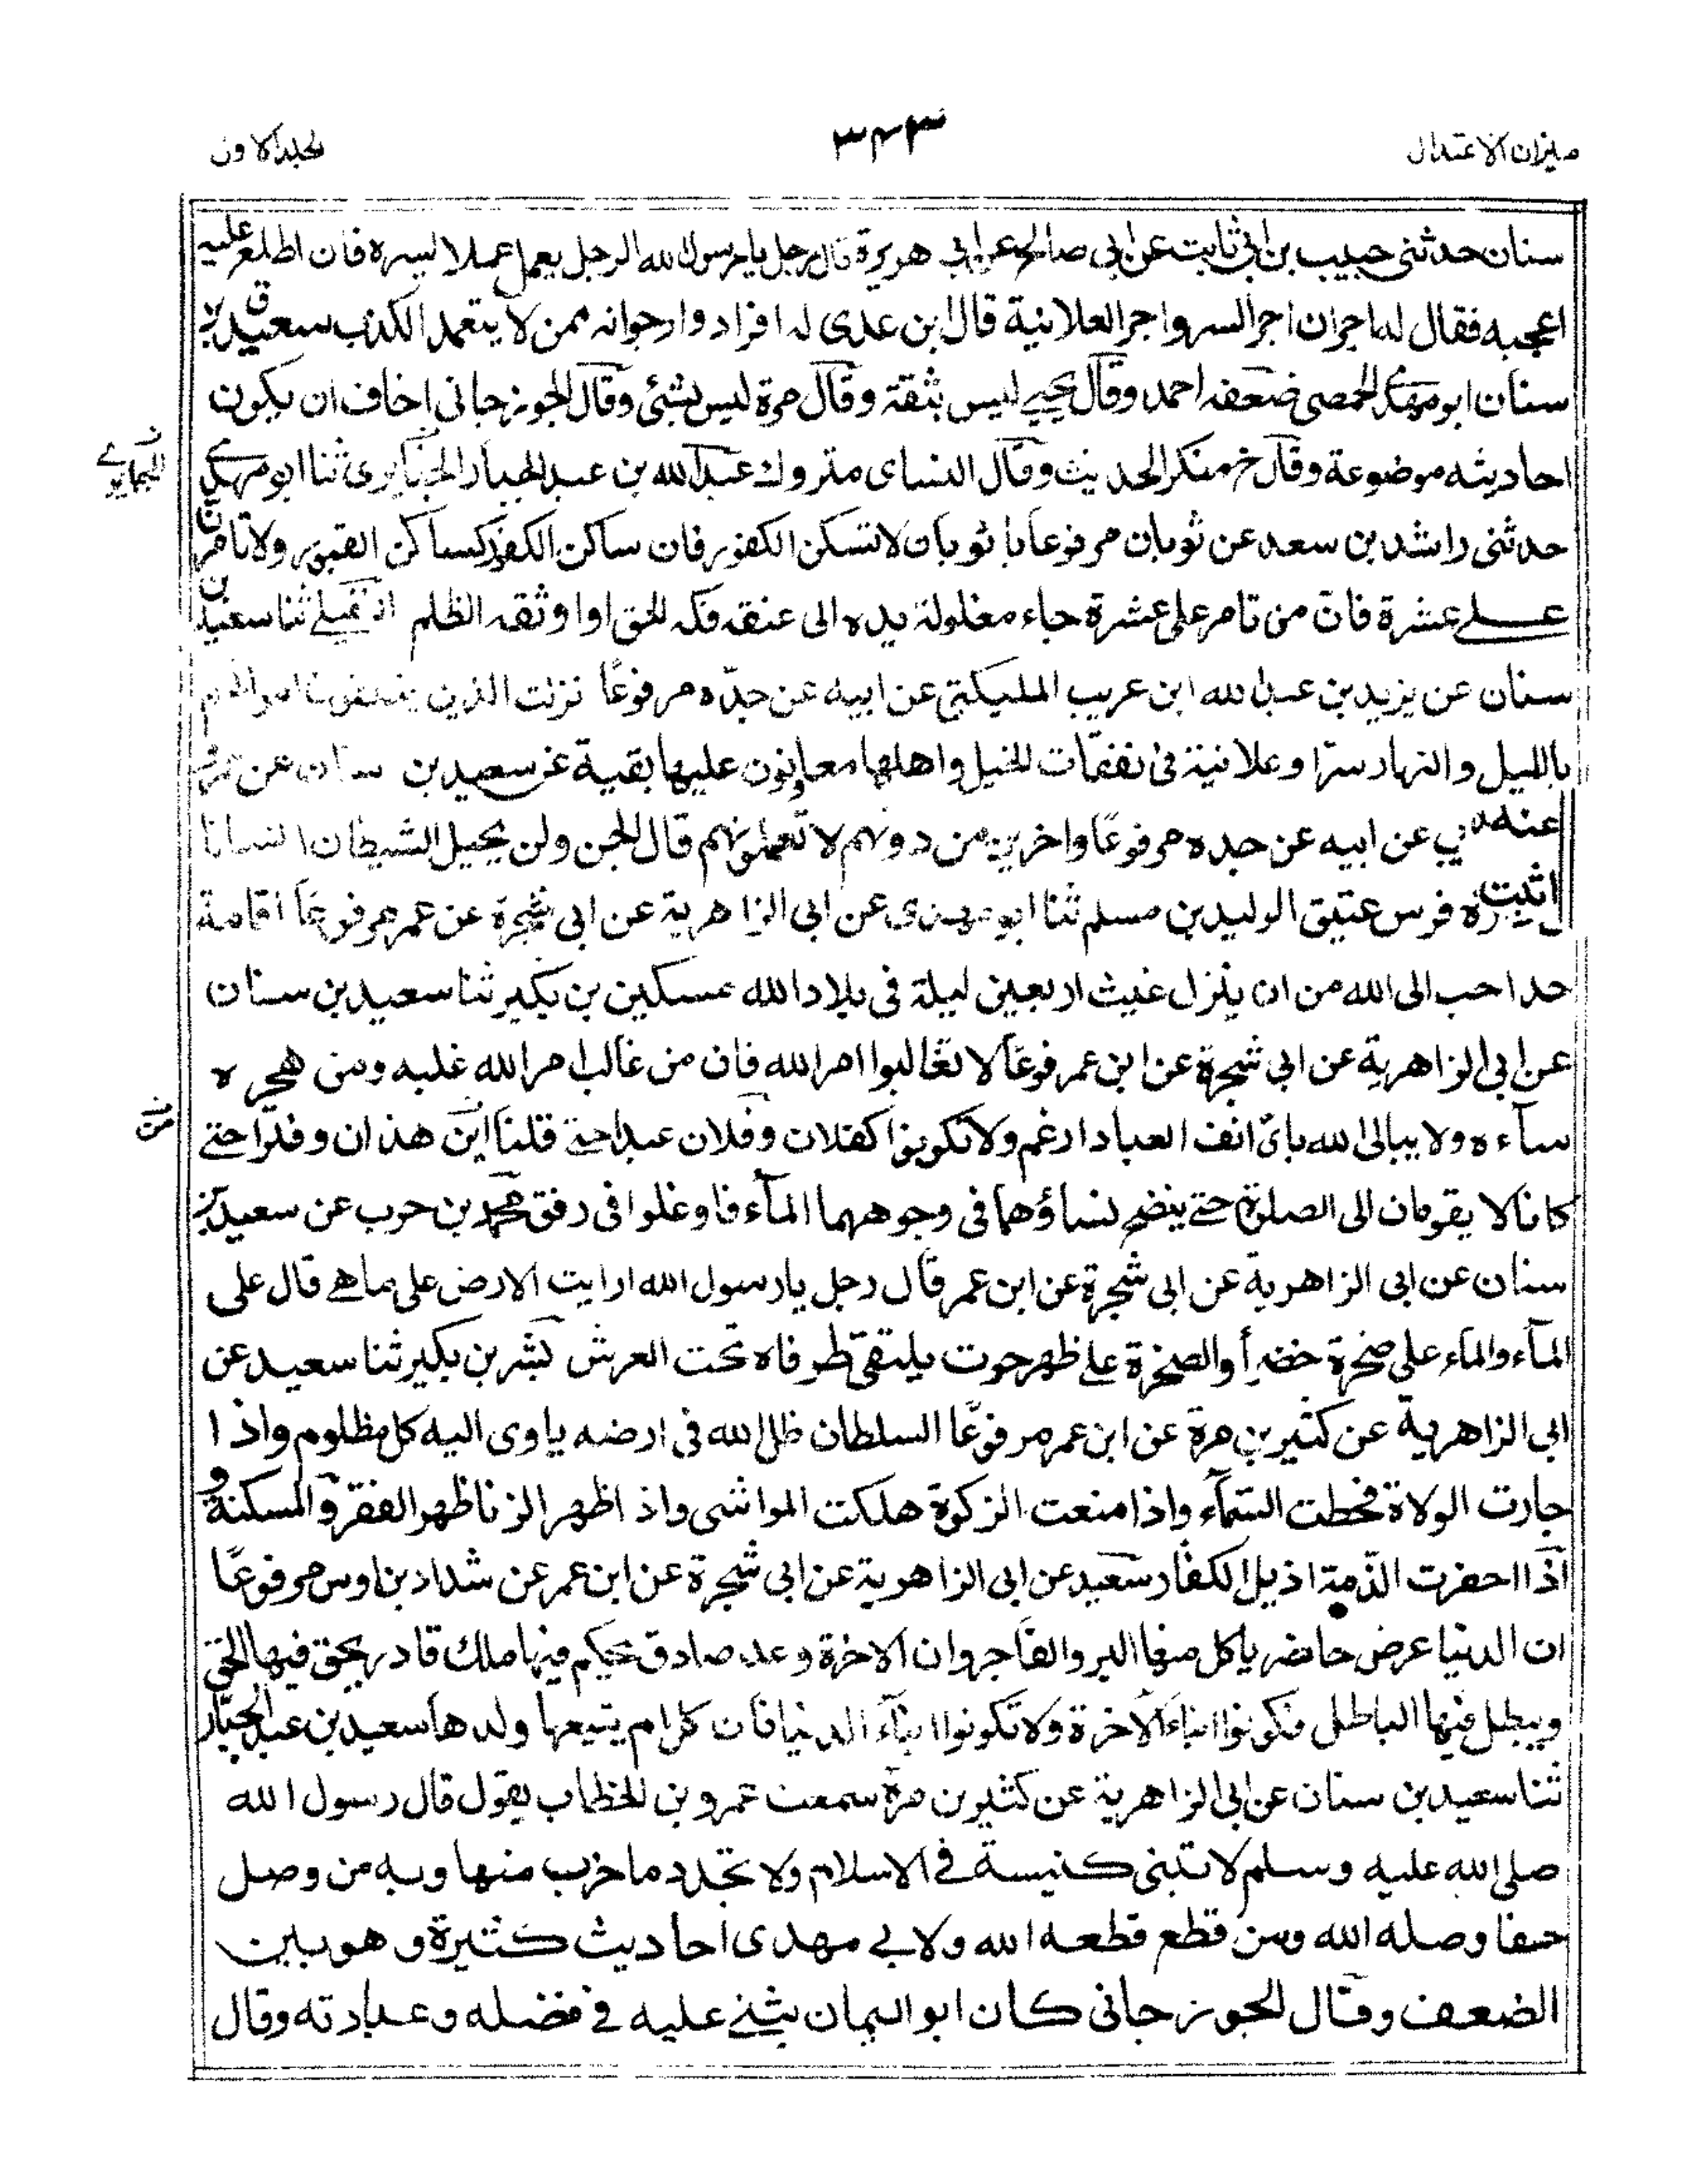 ميزان الاعتدال
٣٤٣
الجلد الاول
سنان حدثنى حبيب بن ابى ثابت عن ابى صالح عن ابى هريرة قال رجل يا رسول الله الرجل يعمل عملا ليسره فان اطلع عليه
اعجبه فقال له اجران اجر السر واجر العلانية قال ابن عدى له افراد وارجو انه ممن لا يتعمد الكذب سعيد بن ق
سنان ابو مهدى الحمصى ضعفه احمد وقال يحيى ليس بثقة وقال مرة ليس بشئ وقال الجوزجانى اخاف ان يكون
احاديثه موضوعة وقال خ منكر الحديث وقال النساى متروك عبد الله بن عبد الجبار الخبايرى ثنا ابو مهدى
حدثنى راشد بن سعد عن ثوبان مرفوعا يا ثوبان لا تسكن الكفور فان ساكن الكفور كساكن القبور ولا تامرن
على عشرة فان من تامر على عشرة جاء مغلولة يده الى عنقه فكه الحق او اوثقه الظلم ثنا سعيد بن
سنان عن يزيد بن عبد الله ابن عريب المليكى عن ابيه عن جده مرفوعًا نزلت الذين ينفقون اموالهم
بالليل والنهار سرًا وعلانية فى نفقات الخيل واهلها معانون عليها بقية عن سعيد بن سنان عن
عن ابيه عن جده مرفوعًا واخرين من دونهم لا تعلمونهم قال الجن ولن يخيل الشيطان انسانا
فرس عتيق الوليد بن مسلم ثنا ابو مهدى عن ابى الزاهرية عن ابى شجرة عن عمر مرفوعًا اقامة
حد احب الى الله من ان ينزل غيث اربعين ليلة فى بلاد الله مسكين بن بكير ثنا سعيد بن سنان
عن ابى الزاهرية عن ابى شجرة عن ابن عمر مرفوعًا لا تغالبوا امر الله فان من غالب امر الله غلبه ومن هجره
ساءه ولا يبالى الله باى انف العباد ارغم ولا تكونوا كفلان وفلان عبدا حتى قلنا اين هذان وفترا حتى
كانا لا يقومان الى الصلوة حتى ينضح نساؤهما فى وجوههما الماء فاوغلوا فى رفق محمد بن حرب عن سعيد بن
سنان عن ابى الزاهرية عن ابى شجرة عن ابن عمر قال رجل يا رسول الله ارايت الارض على ما هى قال على
الماء والماء على صخرة خضرأ والصخرة على ظهر حوت يلتقى طرفاه تحت العرش بشر بن بكير ثنا سعيد عن
ابى الزاهرية عن كثير بن مرة عن ابن عمر مرفوعًا السلطان ظل الله فى ارضه ياوى اليه كل مظلوم واذا
جارت الولاة قحطت السماء واذا منعت الزكوة هلكت المواشى واذا ظهر الزنا ظهر الفقر والمسكنة و
اذا اخفرت الذمة اذيل الكفار سعيد عن ابى الزاهرية عن ابى شجرة عن ابن عمر عن شداد بن اوس مرفوعًا
ان الدنيا عرض حاضر ياكل منها البر والفاجر وان الاخرة وعد صادق يحكم فيها ملك قادر يحق فيها الحق
ويبطل فيها الباطل فكونوا ابناء الاخرة ولا تكونوا ابناء الدنيا فان كل ام يتبعها ولدها سعيد بن عبد الجبار
ثنا سعيد بن سنان عن ابى الزاهرية عن كثير بن مرة سمعت عمرو بن الخطاب يقول قال رسول الله
صلى الله عليه وسلم لا تبنى كنيسة فى الاسلام ولا تجدد ما خرب منها وبه من وصل
صفا وصله الله ومن قطع قطعه الله ولابى مهدى احاديث كثيرة وهو بين
الضعف وقال الجوزجانى كان ابو اليمان يثنى عليه فى فضله وعبادته وقال